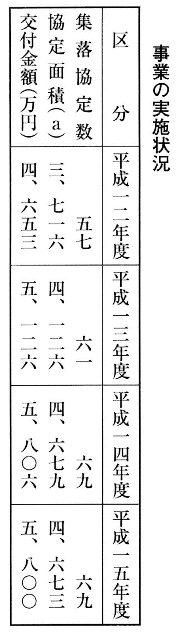 事業の実施状況
区分 平成一二年度 平成一三年度 平成一四年度 平成一五年度
集落協定数 五七 六一 六九 六九
協定面積(a) 三、七一六 四、一二六 四、六七九 四、六七三
交付金額(万円) 四、六五三 五、一二六 五、八〇六 五、八〇〇